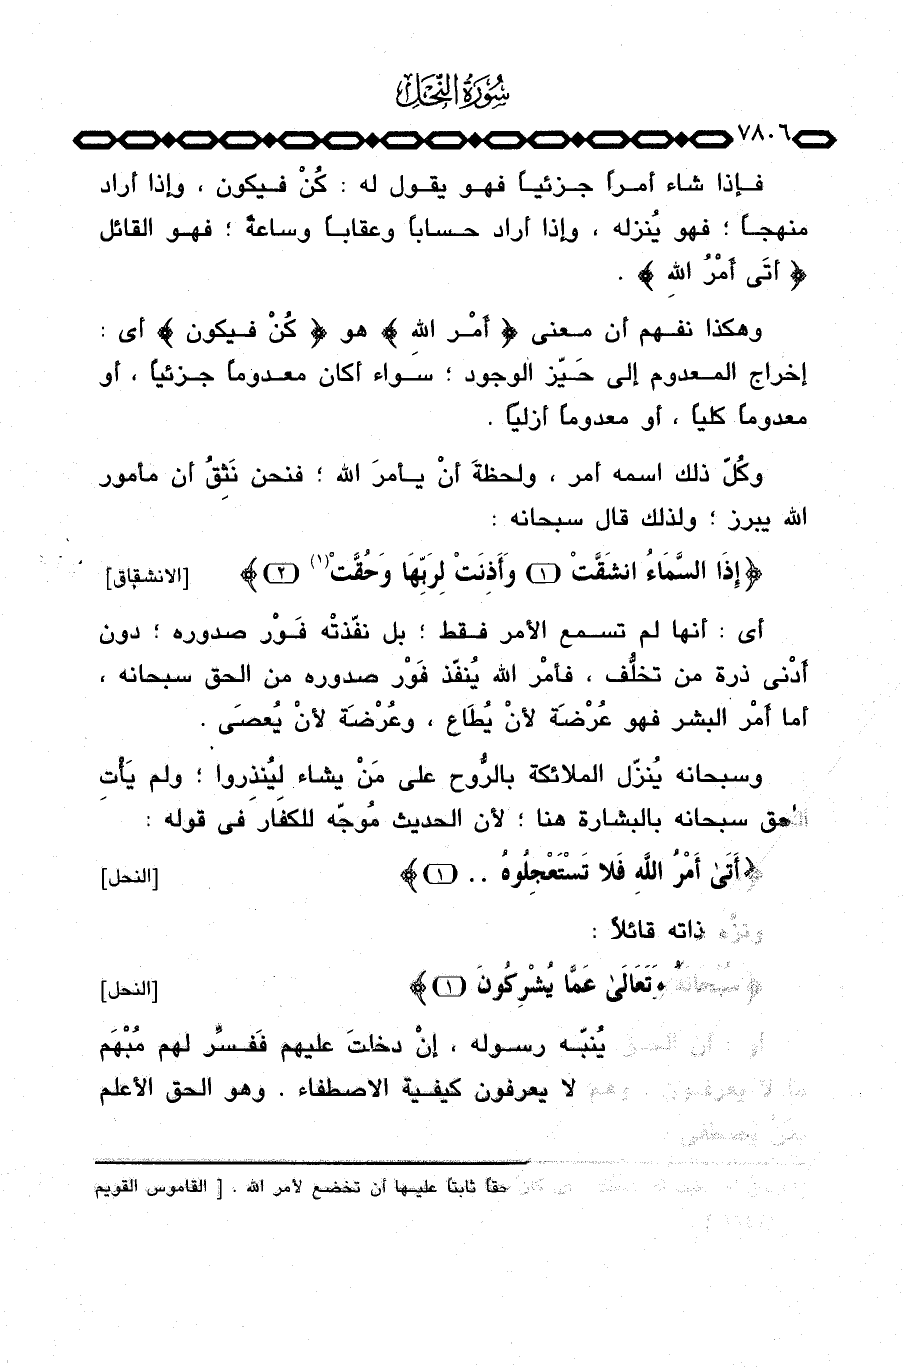 سُورَةُ النَّحْلِ
٧٨٠٦
فـإذا شاء أمـراً جـزئيـاً فهـو يقـول له : كُنْ فـيكون ، وإذا أراد
منهجـاً ؛ فهو يُنزله ، وإذا أراد حسـاباً وعقابـاً وساعةً ؛ فهـو القائل
﴿ أتَى أمْرُ اللهِ ﴾ .
وهكذا نفـهم أن مـعنى ﴿ أَمْـر اللهِ ﴾ هو ﴿ كُنْ فـيكون ﴾ أى :
إخراج المـعدوم إلى حَـيّز الوجود ؛ سـواء أكان معـدوماً جـزئياً ، أو
معدوماً كلياً ، أو معدوماً أزلياً .
وكُلّ ذلك اسمه أمر ، ولحظةَ أنْ يـأمرَ الله ؛ فنحن نَثِقُ أن مأمور
الله يبرز ؛ ولذلك قال سبحانه :
﴿إِذَا السَّمَاءُ انشَقَّتْ (١) وَأَذِنَتْ لِرَبِّهَا وَحُقَّتْ(١) (٢)﴾ [الانشقاق]
أى : أنها لم تسـمع الأمر فـقط ؛ بل نفّذتْه فَـوْر صدوره ؛ دون
أَدْنى ذرة من تخلُّف ، فـأمْر الله يُنفّذ فَوْر صدوره من الحق سبحانه ،
أما أَمْر البشر فهو عُرْضَة لأنْ يُطَاع ، وعُرْضَة لأنْ يُعصَى .
وسبحانه يُنزّل الملائكة بالرُّوح على مَنْ يشاء لِيُنذِروا ؛ ولم يَأْتِ
الحق سبحانه بالبشارة هنا ؛ لأن الحديث مُوجّه للكفار فى قوله :
﴿أَتَىٰ أَمْرُ اللَّهِ فَلا تَسْتَعْجِلُوهُ .. (١)﴾ [النحل]
ونزَّه ذاته قائلاً :
﴿ سُبْحَانَهُ وَتَعَالَىٰ عَمَّا يُشْرِكُونَ (١)﴾ [النحل]
أو : أن الحـق يُنبّـه رسـوله ، إنْ دخلتَ عليهم فَفسـرِّ لهم مُبْهَم
ما لا يعرفـون . وهم لا يعرفون كيفـية الاصطفاء . وهو الحق الأعلم
بمَنْ يصطفى .
حقاً ثابتاً عليها أن تخضع لأمر الله . [ القاموس القويم